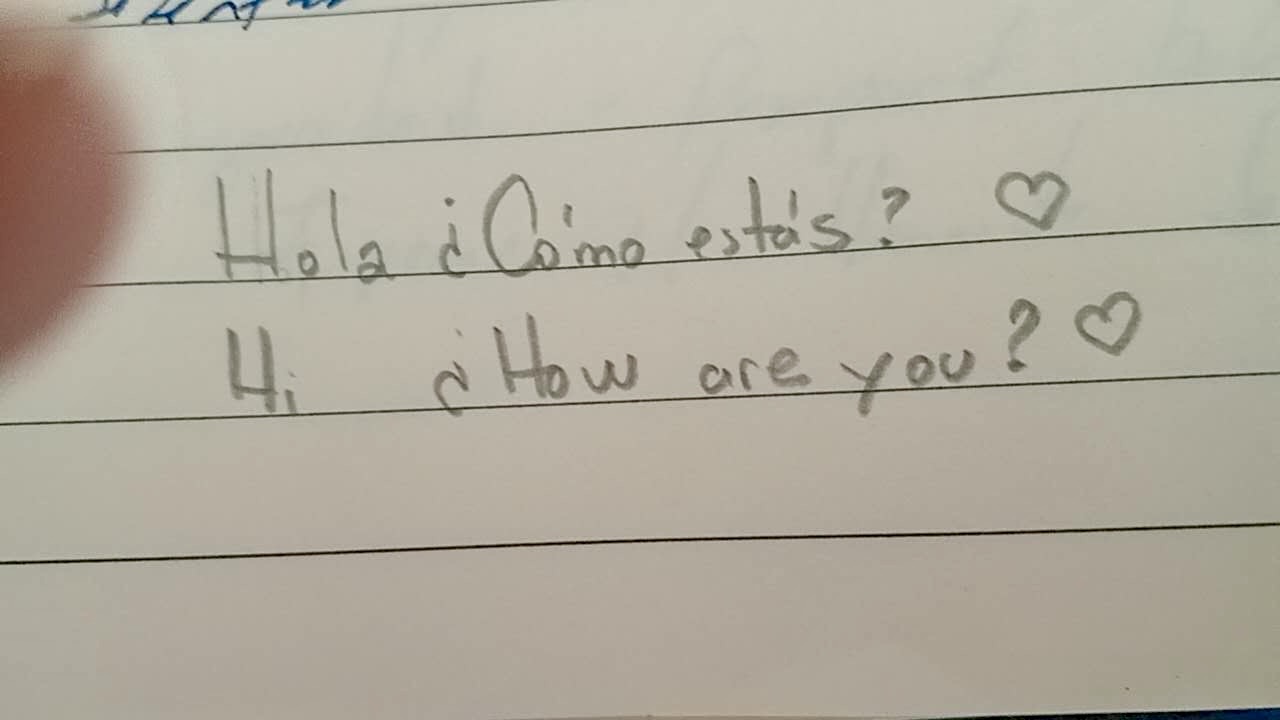 Hola ¿Cómo estás? ♡
Hi ¿How are you? ♡